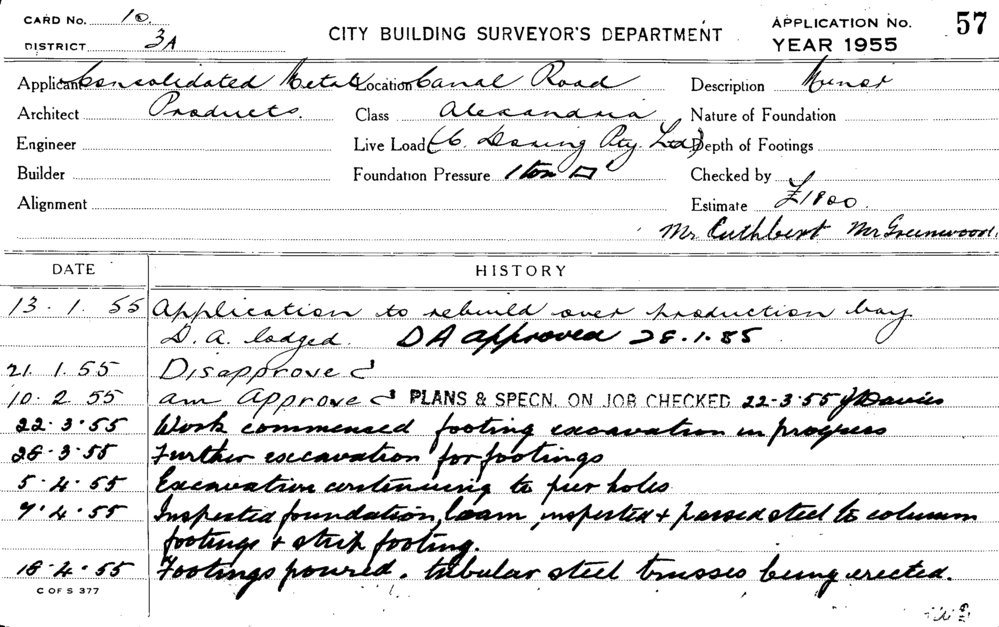 CARD No. 10.
DISTRICT 3A
CITY BUILDING SURVEYOR'S DEPARTMENT
APPLICATION No. 57
YEAR 1955
Applicant Consolidated Metal Location Canal Road Description Minor
Architect Products. Class Alexandria Nature of Foundation
Engineer Live Load (C. Pty. Ltd) Depth of Footings
Builder Foundation Pressure 1 ton □' Checked by
Alignment Estimate £1800
Mr Cuthbert Mr Greenwood.
DATE HISTORY
13. 1. 55 Application to rebuild over production bay
D. A. lodged. DA approved 28.1.55
21. 1. 55 Disapproved
10. 2 55 am Approved PLANS & SPECN. ON JOB CHECKED 22-3-55 J Davies
22.3.55 Work commenced footing excavation in progress
28.3.55 Further excavation for footings
5.4.55 Excavation continuing to pier holes
7.4.55 Inspected foundation, loam, inspected + passed steel to column
footings + strip footing.
18.4.55 Footings poured. tubular steel trusses being erected.
C OF S 377